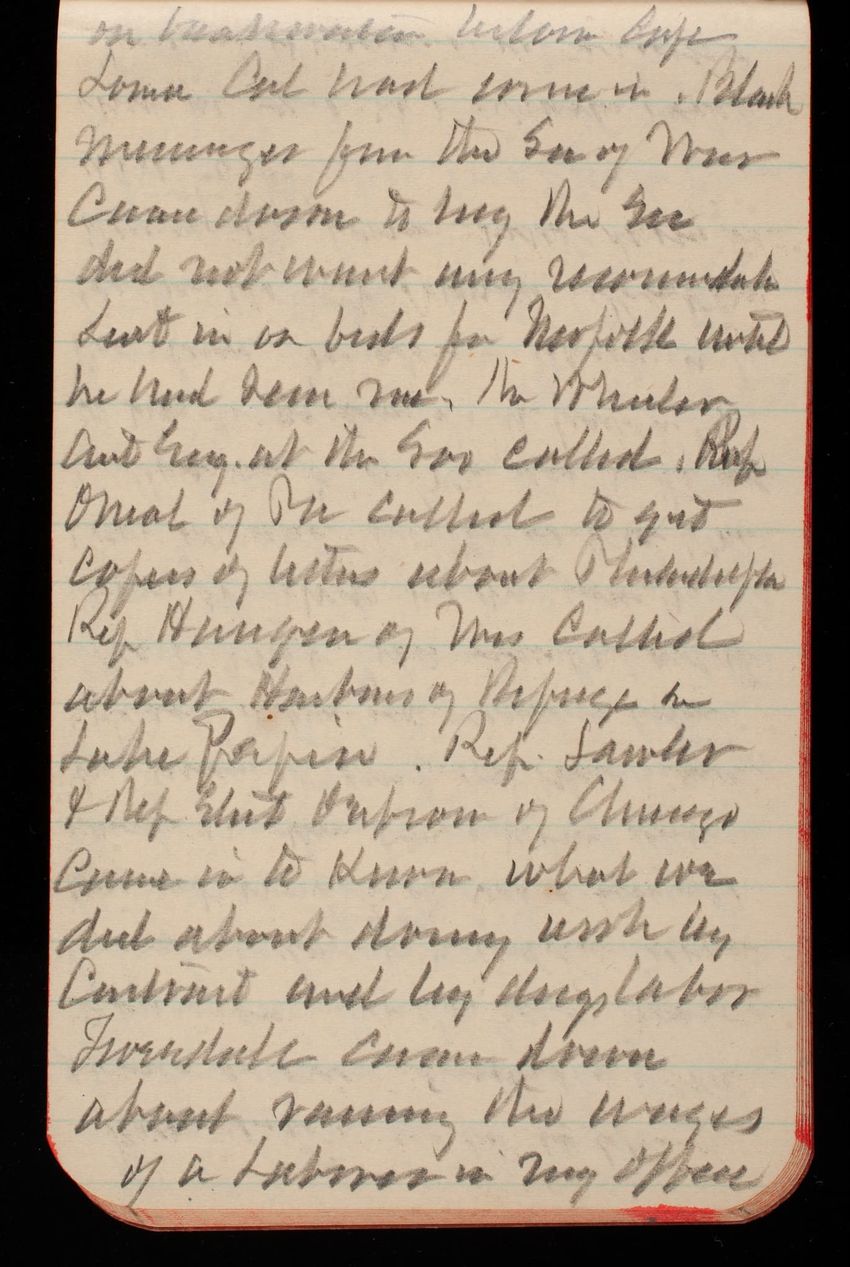 on breakwater below Cape
Loma Cal had come in. Black
Messenger from the Sec of War
Came down to say the Sec
did not want any recommendation
Sent in on bids for Norfolk until
he had seen me. Mr Wheeler
Asst Secy. at the Soo called. Rep
ONeal of Pa called to get
copies of letters about Philadelphia
Rep Haugen of Wis Called
about Harbors of Refuge in
Lake Pepin. Rep. Lawler
& Rep Elect of Chicago
Came in to Know what we
did about doing work by
Contract and by days labor
Truesdell came down
about raising the wages
of a Laborer in my office